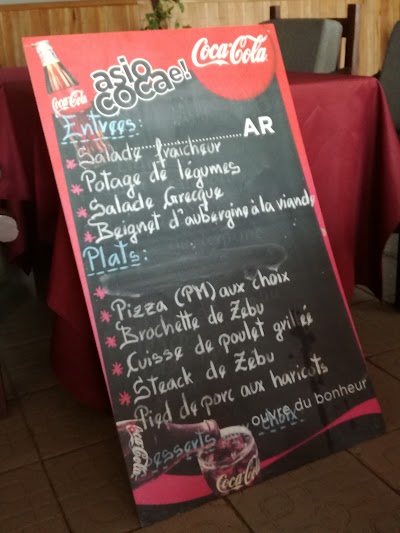 Coca-Cola
Coca-Cola
asio
coca e!
Entrees:
AR
* Salade fraicheur
* Potage de légumes
* Salade Grecque
* Beignet d'aubergine à la viande
Plats:
* Pizza (PM) aux choix
* Brochette de Zébu
* Cuisse de poulet grillée
* Steack de Zébu
* Pied de porc aux haricots
ouvre du bonheur
Desserts choix
Coca-Cola
Coca-Cola